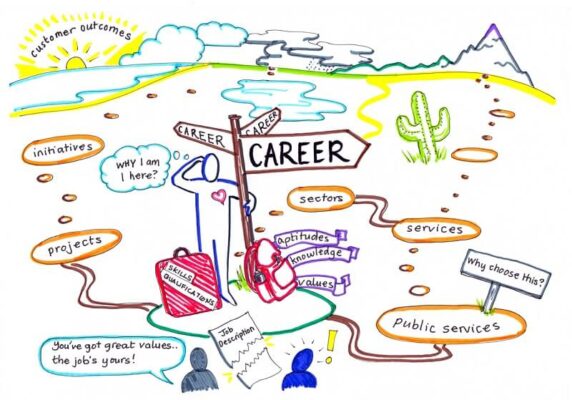 customer outcomes
CAREER
CAREER
CAREER
initiatives
WHY I AM
I here?
sectors
services
projects
aptitudes
knowledge
values
SKILLS
QUALIFICATIONS
Why choose this?
Public services
Job
Description
You've got great values..
the job's yours!
!